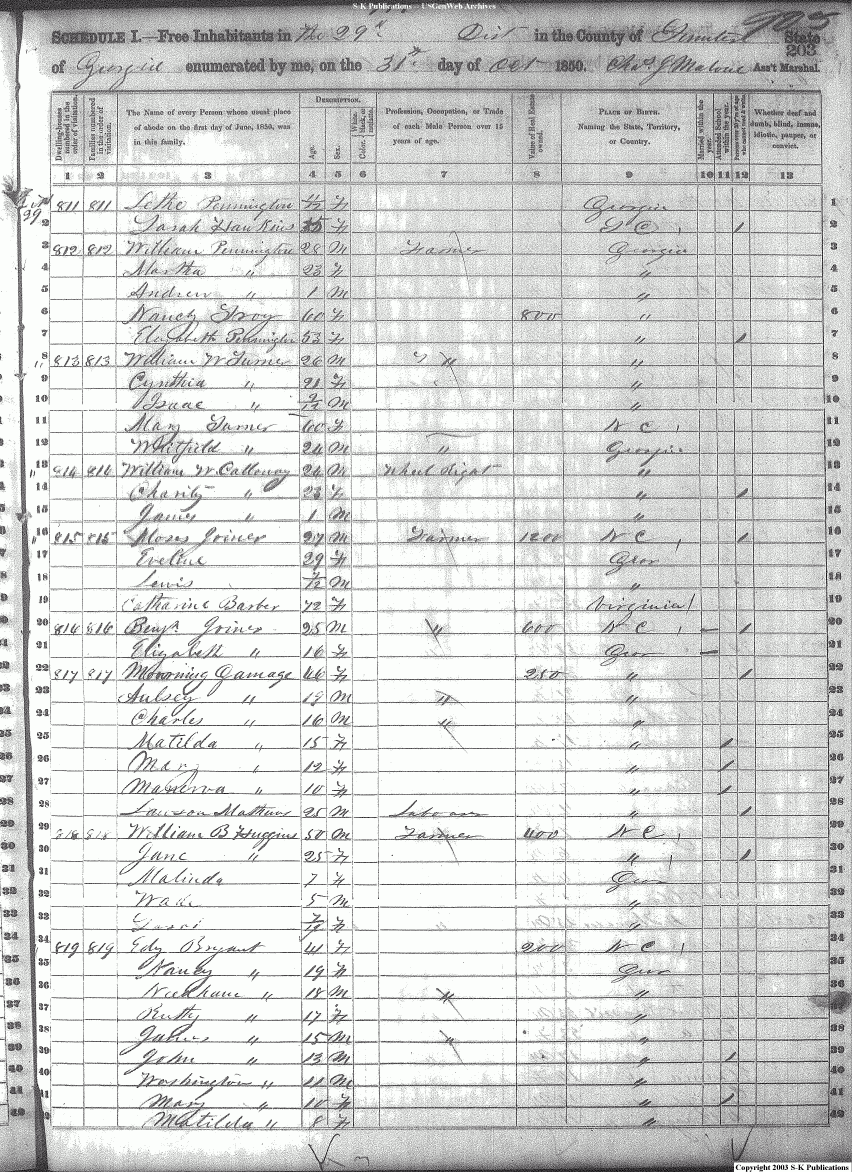 S-K Publications — USGenWeb Archives
SCHEDULE I.—Free Inhabitants in the 29th Dist in the County of State
203
of Georgia enumerated by me, on the 31st day of Oct 1850. Chas J Malone Ass't Marshal.
Dwelling-houses numbered in the order of visitation. Families numbered in the order of visitation. The Name of every Person whose usual place of abode on the first day of June, 1850, was in this family. Description. Age. Sex. Color, Profession, Occupation, or Trade of each Male Person over 15 years of age. Value of Real Estate owned. Place of Birth. Naming the State, Territory, or Country. Married within the year. Attended School within the year. Whether deaf and dumb, blind, insane, idiotic, pauper, or convict.
1 2 3 4 5 6 7 8 9 10 11 12 13
1 811 811 Pennington F Georgia 1
2 Sarah Hawkins F S C 2
3 812 812 William Pennington 28 M Farmer Georgia 3
4 Martha " 23 F " 4
5 Andrew " 1 M " 5
6 Nancy 60 F 800 " 6
7 Elizabeth Pennington 53 F " 7
8 813 813 William W Turner 26 M " " 8
9 Cynthia " 21 F " 9
10 Isaac " M " 10
11 Mary Turner 60 F N C 11
12 Whitfield " 24 M " Georgia 12
13 814 814 William W. Calloway 24 M Wheel Right " 13
14 Charity " 23 F " 14
15 James " 1 M " 15
16 815 815 Moses Joiner 27 M Farmer 1200 N C 16
17 Eveline 29 F Geor 17
18 Lewis 7/12 M " 18
19 Catharine Barber 72 F Virginia 19
20 816 816 Benjn. Joiner 25 M " 600 N C 20
21 Elizabeth " 16 F Geor 21
22 817 817 Mourning Gamage 46 F 250 " 22
23 " 19 M " " 23
24 Charles " 16 M " " 24
25 Matilda " 15 F " 25
26 Mary " 12 F " 26
27 Manerva " 10 F " 27
28 Lawson Mathews 25 M " 28
29 818 818 William B Huggins 50 M Farmer 400 N C 29
30 Jane " 25 F " 30
31 Malinda 7 F Geor 31
32 Wade 5 M " 32
33 F " 33
34 819 819 Edy Bryant 41 F 200 N C 34
35 Nancy " 19 F Geor 35
36 " 18 M " " 36
37 " 17 F " 37
38 James " 15 M " " 38
39 John " 13 M " 39
40 Washington " 11 M " 40
41 Mary " 10 F " 41
Matilda " 8 F "
Copyright 2003 S-K Publications